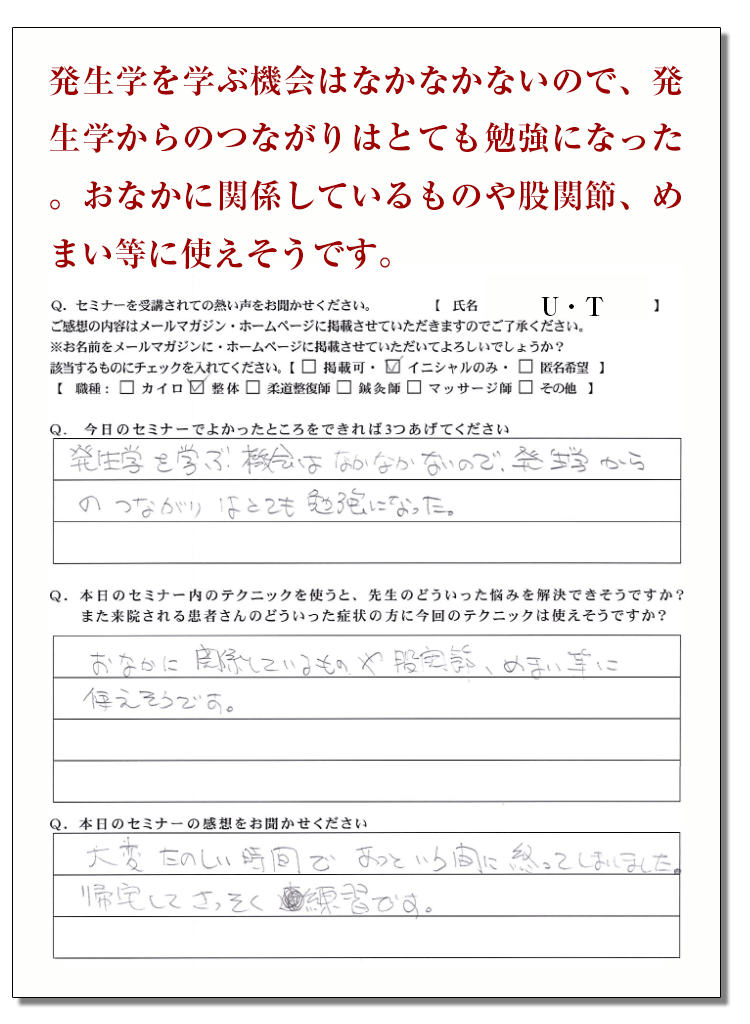 発生学を学ぶ機会はなかなかないので、発
生学からのつながりはとても勉強になった
。おなかに関係しているものや股関節、め
まい等に使えそうです。
Q．セミナーを受講されての熱い声をお聞かせください。 【 氏名 U・T 】
ご感想の内容はメールマガジン・ホームページに掲載させていただきますのでご了承ください。
※お名前をメールマガジンに・ホームページに掲載させていただいてよろしいでしょうか？
該当するものにチェックを入れてください。【 □ 掲載可・ ☑ イニシャルのみ・ □ 匿名希望 】
【 職種： □ カイロ ☑ 整体 □ 柔道整復師 □ 鍼灸師 □ マッサージ師 □ その他 】
Q． 今日のセミナーでよかったところをできれば3つあげてください
発生学を学ぶ機会はなかなかないので、発生学から
のつながりはとても勉強になった。
Q．本日のセミナー内のテクニックを使うと、先生のどういった悩みを解決できそうですか？
また来院される患者さんのどういった症状の方に今回のテクニックは使えそうですか？
おなかに関係しているものや股関節、めまい等に
使えそうです。
Q．本日のセミナーの感想をお聞かせください
大変たのしい時間であっという間に終ってしまいました。
帰宅してさっそく練習です。